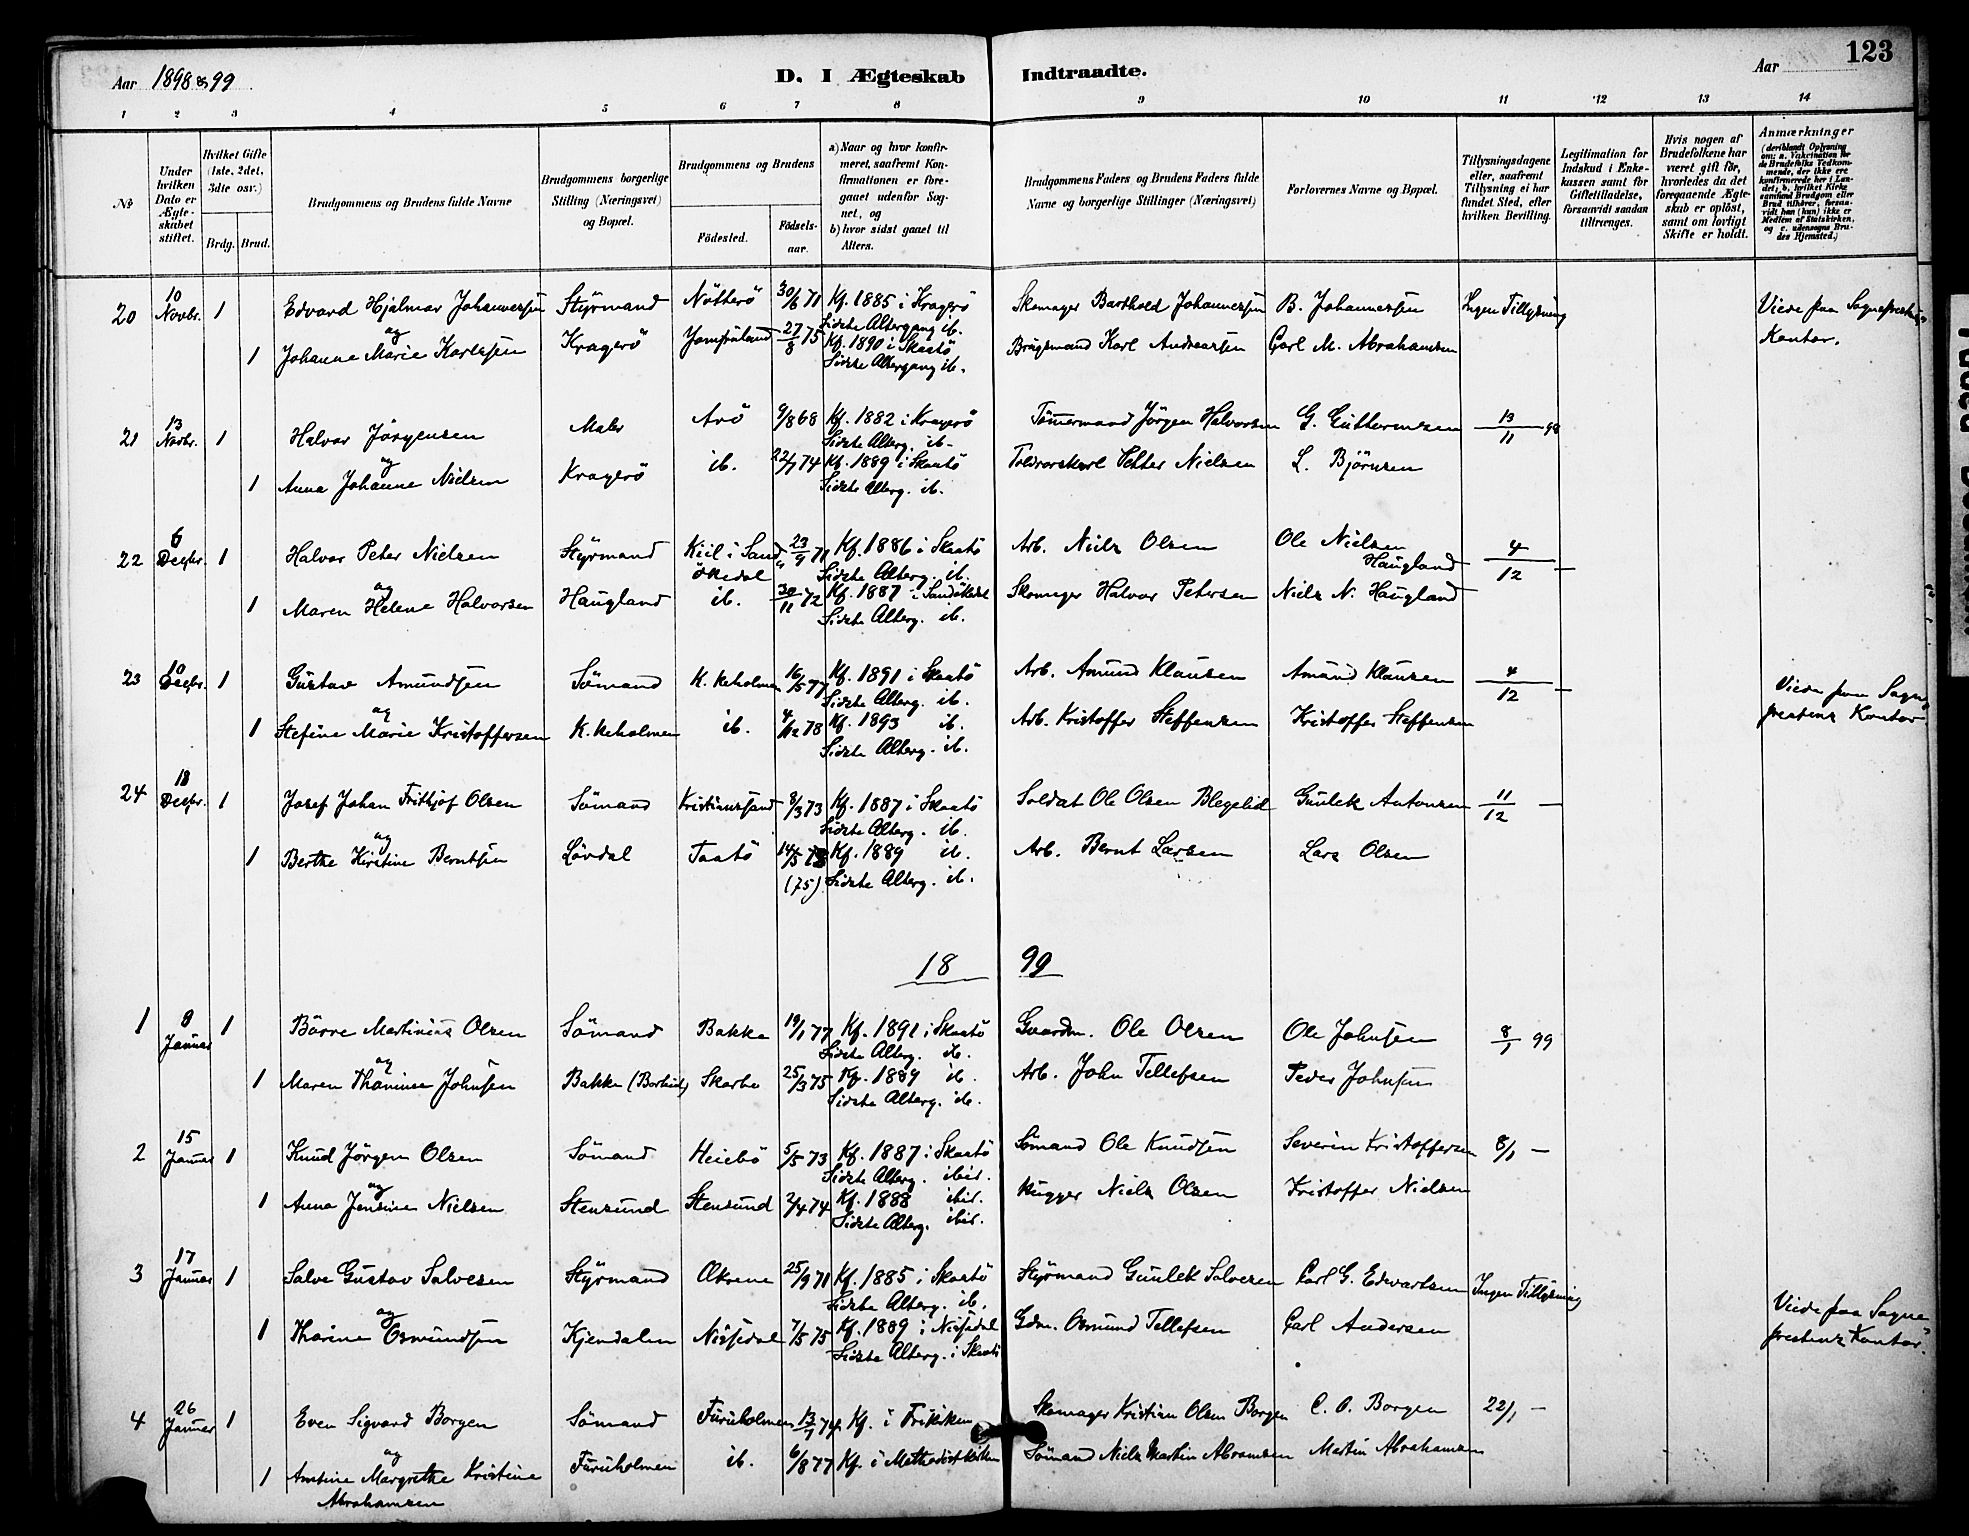 123
Aar 1898 & 99 D. I Ægteskab Indtraadte. Aar
1 2 3 4 5 6 7 8 9 10 11 12 13 14
№ Under hvilken Dato er Ægteskabet stiftet. Hvilket Gifte (1ste, 2det, 3die osv.) Brdg. Brud. Brudgommens og Brudens fulde Navne Brudgommens borgerlige Stilling (Næringsvei) og Bopæl. Brudgommens og Brudens Födested. Födselsaar. a) Naar og hvor konfirmeret, saafremt Konfirmationen er foregaaet udenfor Sognet, og b) hvor sidst gaaet til Alters. Brudgommens Faders og Brudens Faders fulde Navne og borgerlige Stillinger (Næringsvei) Forlovernes Navne og Bopæl. Tillysningsdagene eller, saafremt Tillysning ei har fundet Sted, efter hvilken Bevilling. Legitimation for Indskud i Enkekassen samt for Giftetilladelse, forsaavidt saadan tiltrænges. Hvis nogen af Brudefolkene har været gift för, hvorledes da det foregaaende Ægteskab er oplöst, samt om lovligt Skifte er holdt. Anmærkninger (deriblandt Oplysning om: a. Vakcination for de Brudefolks Vedkommende, der ikke ere konfirmerede her i Landet; b. hvilket Kirkesamfund Brudgom eller Brud tilhörer, forsaavidt han (hun) ikke er Medlem af Statskirken, og c. udensogns Brudes Hjemsted.)
20 10 Novbr. 1 Edvard Hjalmar Johannessen Styrmand Nötterö 30/6 71 Kf. 1885 i Kragerö Skomager Barthold Johannessen B. Johannessen Ingen Tillysning Viede paa Sogneprestens
og Sidste Altergang ib.
1 Johanne Marie Karlssen Kragerö Jomfruland 27/8 75 Kf. 1890 i Skaatö Karl Andreassen Carl M. Abrahamsen Kontor.
Sidste Altergang ib.
21 13 Novbr. 1 Halvor Jörgensen Maler Arö 9/8 68 Kf. 1882 i Kragerö Tömermand Jörgen Halvorsen G. Guttormsen 13/11 98
og Sidste Alterg. ib.
1 Anna Johanne Nielsen Kragerö ib. 22/1 74 Kf. 1889 i Skaatö Petter Nielsen L. Björnsen
Sidste Alterg. ib.
22 6 Decbr. 1 Halvor Peter Nielsen Styrmand Kiil i Sandökedal 23/9 71 Kf. 1886 i Skaatö Arb. Niels Olsen Ole Nielsen Haugland 4/12 —
og Sidste Alterg. ib.
1 Maren Helene Halvorsen Haugland ib. 30/11 72 Kf. 1887 i Sandökedal Skomager Halvor Petersen Niels N. Haugland
Sidste Alterg. ib.
23 10 Decbr. 1 Gustav Amundsen Sömand K. Keholmen 16/5 77 Kf. 1891 i Skaatö Arb. Amund Klausen Amund Klausen 4/12 — Viede paa Sogne
og Sidste Alterg. ib.
1 Stefine Marie Kristoffersen K. Keholmen ib. 4/12 78 Kf. 1893 ib. Arb. Kristoffer Steffensen Kristoffer Steffensen prestens Kontor
Sidste Alterg. ib.
24 18 Decbr. 1 Josef Johan Frithjof Olsen Sömand Kristianssand 8/3 73 Kf. 1887 i Skaatö Soldat Ole Olsen Blegelid Gunlek Antonsen 11/12 —
og Sidste Alterg. ib.
1 Berthe Kirstine Berntsen Lövdal Taatö 14/5 78 Kf. 1889 ib. Arb. Bernt Larsen Lars Olsen
(75) Sidste Alterg. ib.
18 99
1 9 Januar 1 Börre Martinius Olsen Sömand Bakke 19/1 77 Kf. 1891 i Skaatö Gaardm. Ole Olsen Ole Johnsen 8/1 99
og Sidste Alterg. ib.
1 Maren Thomine Johnsen Bakke 25/3 75 Kf. 1889 ib. Arb. John Tellefsen Peder Johnsen
Sidste Alterg. ib.
2 15 Januar 1 Knud Jörgen Olsen Sömand Heiebö 5/5 73 Kf. 1887 i Skaatö Sömand Ole Knudsen Severin Kristoffersen 8/1 —
og Sidste Alterg. ibid.
1 Anna Jensine Nielsen Stensund Stensund 2/4 74 Kf. 1888 ibid. Hugger Niels Olsen Kristoffer Nielsen
Sidste Alterg. ibid.
3 17 Januar 1 Salve Gustav Salvesen Styrmand Okrene 25/9 71 Kf. 1885 i Skaatö Styrmand Gunlek Salvesen Carl G. Edvardsen Ingen Tillysning
og Sidste Alterg. ib. Viede paa Sogne
1 Thorine Osmundsen Kjendalen Nissedal 7/5 75 Kf. 1889 i Nissedal Gdm. Osmund Tellefsen Carl Andersen prestens Kontor.
Sidste Alterg. i Skaatö
4 26 Januar 1 Even Sigvard Borgen Sömand Furuholmen 13/7 74 Kf. i Frikirken Skomager Kristian Olsen Borgen C. O. Borgen 22/1 —
og
1 Amtine Margrethe Kristine Furuholmen ib. 6/8 77 Kf. i Methodistkirken Sömand Niels Martin Abramsen Martin Abrahamsen
Abrahamsen